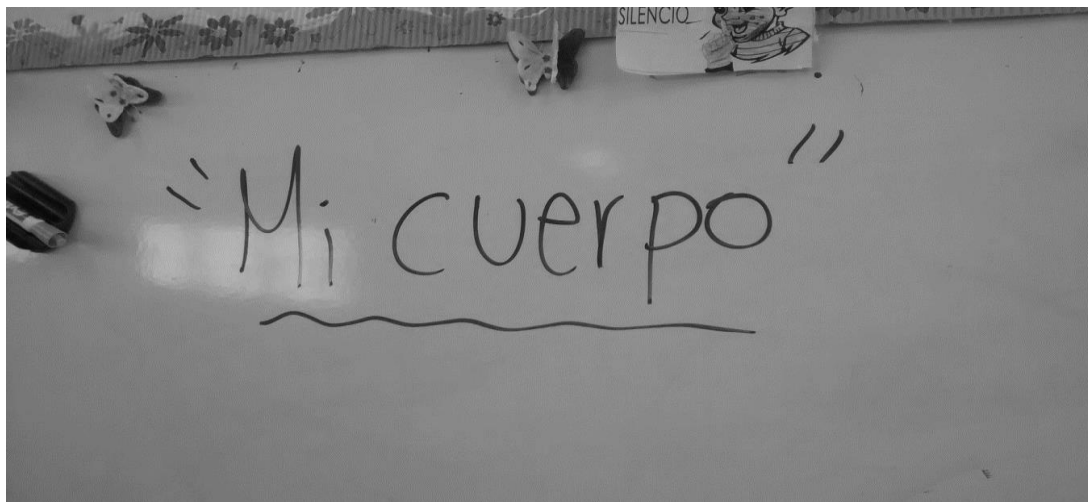 SILENCIO
"Mi cuerpo"